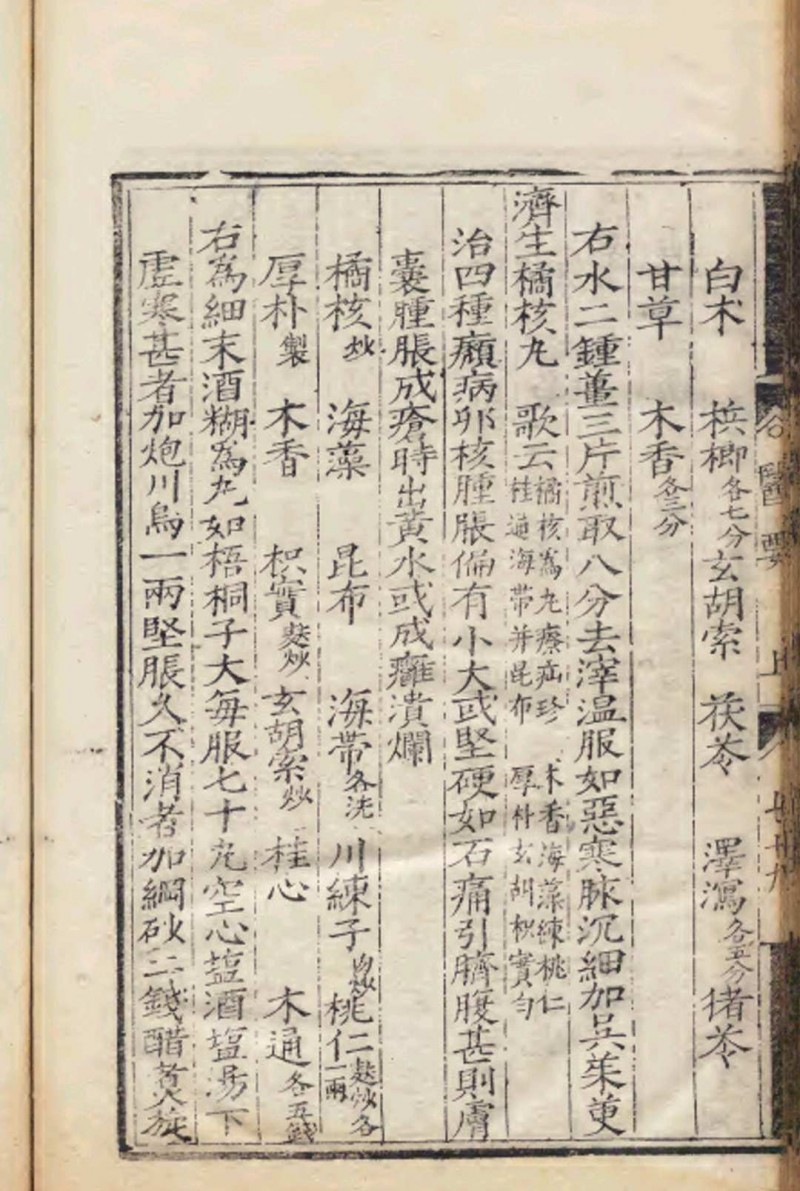 白术 梹榔各七分玄胡索 茯苓 澤瀉各五分猪苓
甘草 木香各三分
右水二鍾薑三片煎取八分去滓温服如惡寒脉沉細加吳茱萸
濟生橘核丸 歌云橘核爲丸療疝珍 木香海藻練桃仁
桂通海帶并昆布 厚朴玄胡枳實勻
治四種㿗病卵核腫脹偏有小大或堅硬如石痛引臍腹甚則膚
囊腫脹成瘡時出黃水或成癰潰爛
橘核炒 海藻 昆布 海帶各洗 川練子肉炒桃仁麩炒各一兩
厚朴製 木香 枳實麩炒玄胡索炒 桂心 木通各五錢
右爲細末酒糊爲丸如梧桐子大每服七十丸空心塩酒塩湯下
虛寒甚者加炮川烏一兩堅脹久不消者加硇砂二錢醋煮入旋
醫要 上